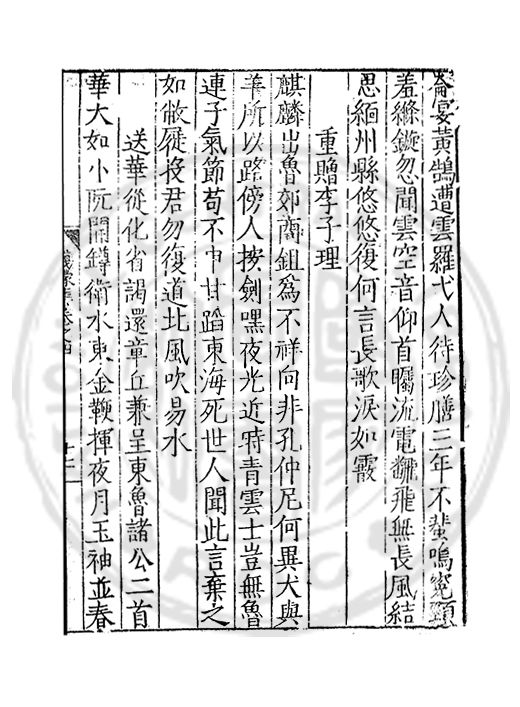 崙宴黃鵠遭雲羅弋人待珍膳三年不蜚鳴宛頸
羞絛鏇忽聞雲空音仰首矚流電翻飛無長風結
思緬州縣悠悠復何言長歌淚如霰
重贈李子理
麒麟出魯郊商鉏為不祥向非孔仲尼何異犬與
羊所以路傍人按劍嘿夜光近時青雲士豈無魯
連子氣節苟不申甘蹈東海死世人聞此言棄之
如敝屣投君勿復道北風吹易水
送華從化省謁還章丘兼呈東魯諸公二首
華大如小阮開罇衛水東金鞭揮夜月玉袖並春